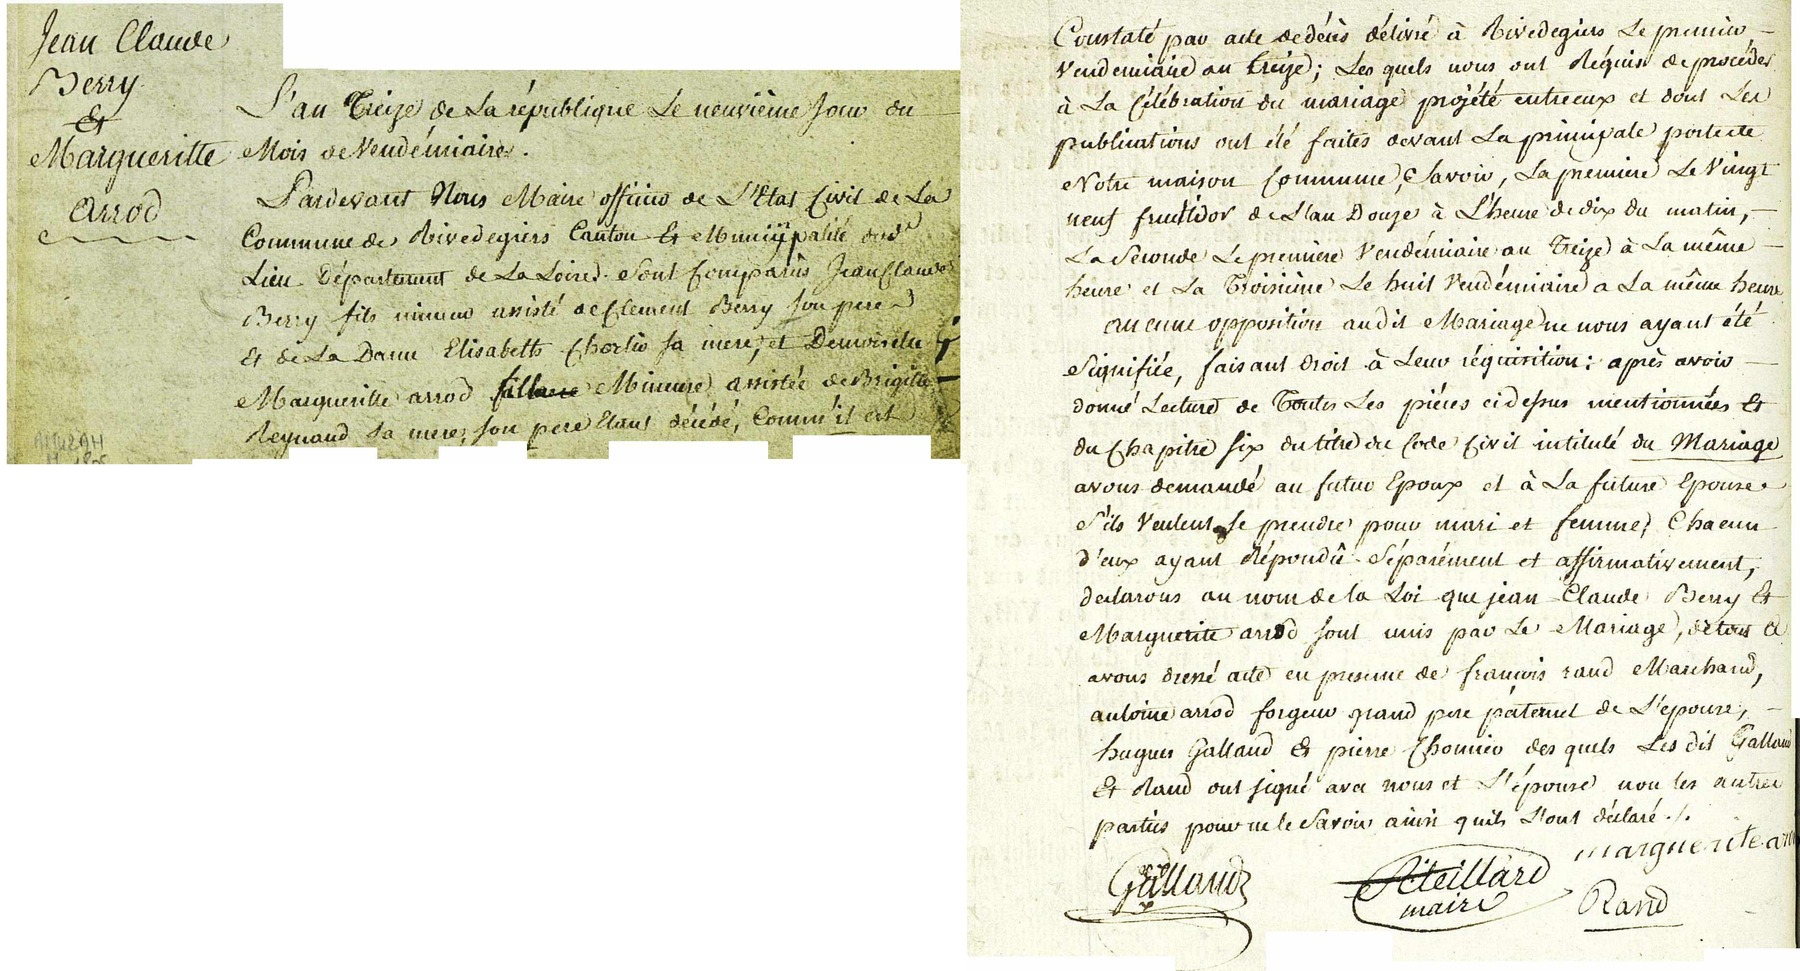 Jean Claude
Berry
Et
Margueritte
Arrod
L'an Treize de La république Le neuvième Jour du
Mois de Vendémiaire.
Pardevant Nous Maire officier de L'Etat Civil de La
Commune de Rivedegiers Canton Et Municipalité dud
Lieu Département de La Loire. Sont Comparus Jean Claude
Berry fils mineur assisté de Clement Berry Son pere
Et de La Dame Elisabeth sa mere, et Demoiselle
Margueritte arrod Mineure assistée de Brigitte
Reynaud sa mere, son pere Etant décédé, Comm'il est
Constaté par acte de décès délivré à Rivedegiers Le premier
Vendemiaire an treize; Les quels nous ont Réquis de procéder
à La Célébration du mariage projété entreeux et dont Les
publications ont été faites devant La principale porte de
Notre maison Commune, Savoir, La premiere Le Vingt
neuf fructidor de L'an Douze à L'heure de dix du matin,
La Seconde Le premiere Vendémiaire an Treize à La même
heure et La Troisième Le huit Vendémiaire a La même heure
aucune opposition audit Mariage ne nous ayant été
Signifiée, faisant droit à Leur réquisition: après avoir
donné Lecture de Toutes Les pièces cidessus mentionnées Et
du Chapitre six du titre du Code Civil intitulé du Mariage
avons demandé au futur Epoux et à La future Epouse
S'ils Veulent se prendre pour mari et femme, Chacun
d'eux ayant Répondû Séparément et affirmativement,
declarons au nom de la Loi que jean Claude Berry Et
Marguerite arrod sont unis par Le Mariage, de tout Ce
avons dressé acte en presence de francois rand Marchand,
antoine arrod forgeur grand pere páternel de L'épouse,
hugues Galland Et pierre Chomier des quels Les dit Galland
Et Rand ont signé avec nous et L'épouse non les autres
parties pour ne le Savoir ainsi quils L'ont déclaré ./.
marguerite ar
Galland
Piteillard
maire
Rand